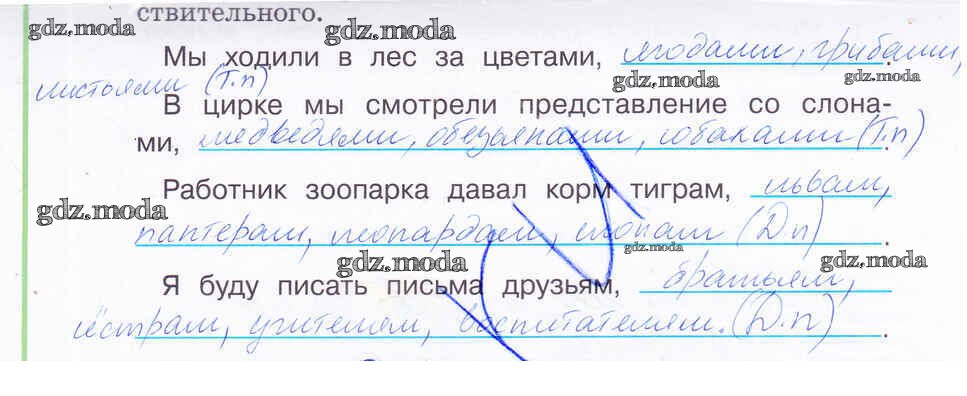 ствительного.
gdz.moda
gdz.moda
Мы ходили в лес за цветами, ягодами, грибами,
gdz.moda
gdz.moda
листьями (Т.п)
В цирке мы смотрели представление со слона-
ми, медведями, обезьянами, собаками (Т.п)
gdz.moda
Работник зоопарка давал корм тиграм, львам,
gdz.moda
пантерам, леопардам, слонам (Д.п)
gdz.moda
gdz.moda
gdz.moda
Я буду писать письма друзьям, братьям,
сёстрам, учителям, воспитателям. (Д.п)